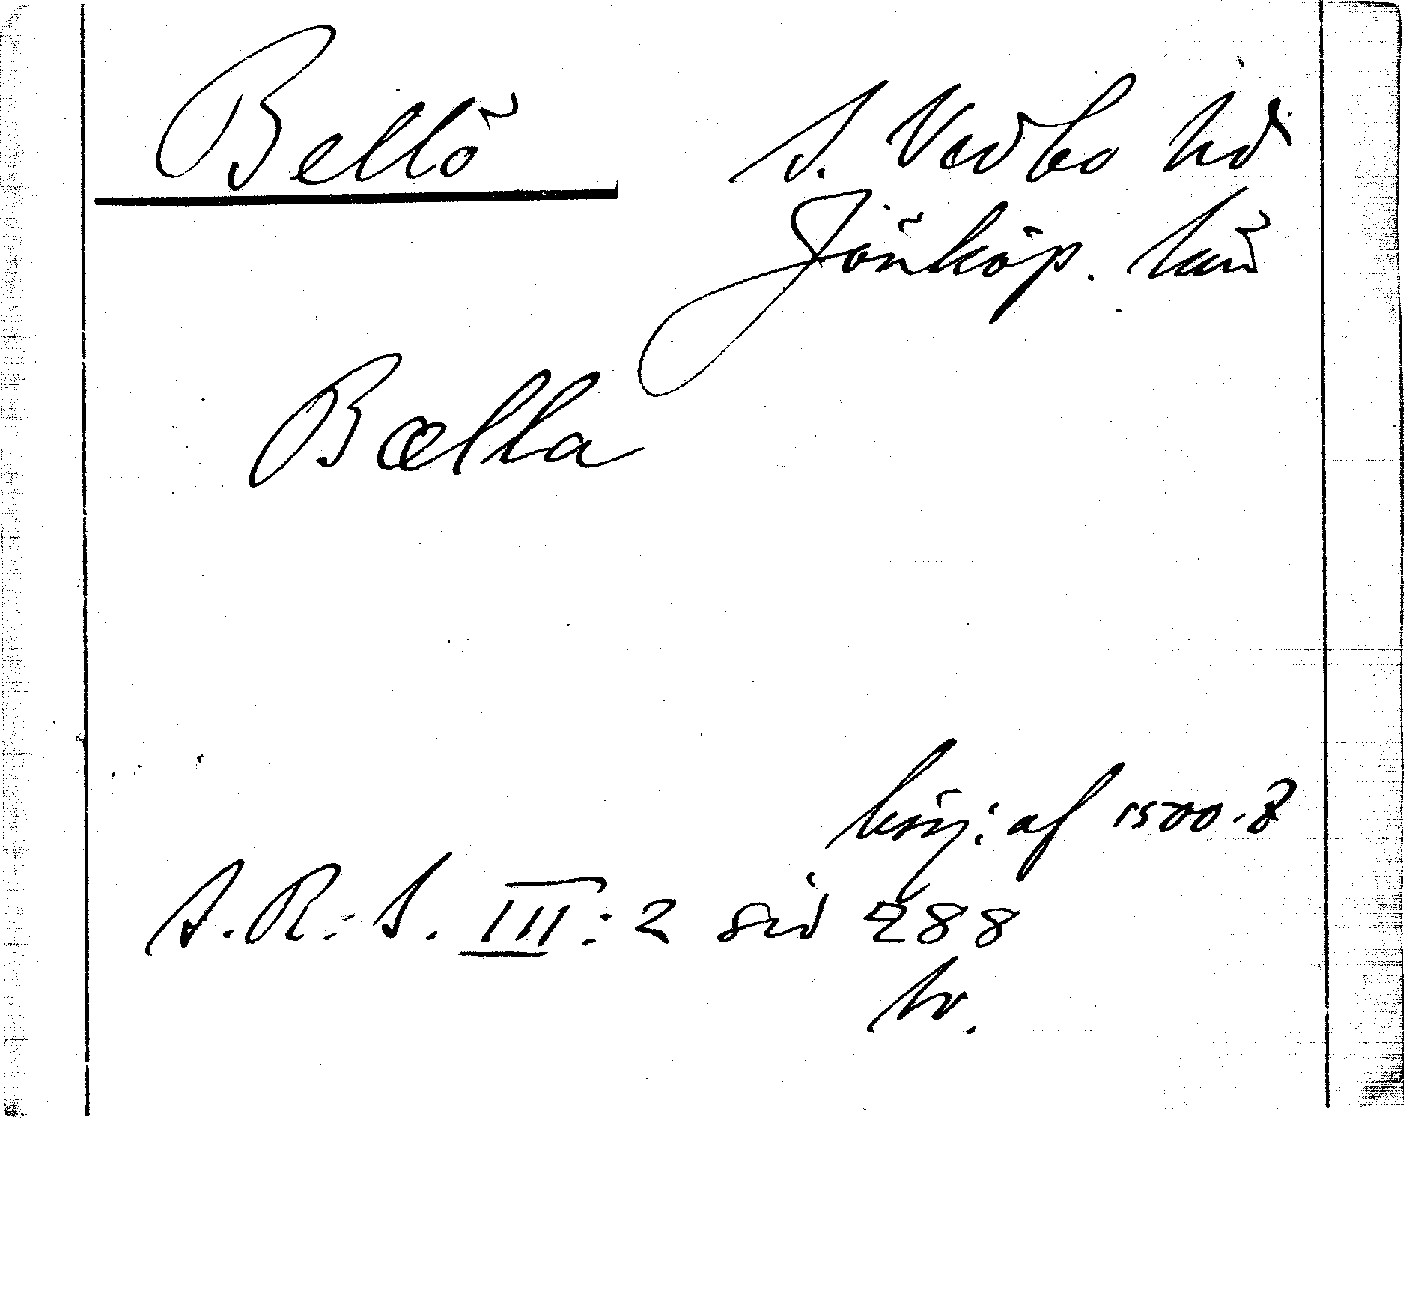 Bellö
S. Vedbo hd
Jönköp. län
Bælla
börj: af 1500-t
S.R:S. III:2 sid 288
hv.